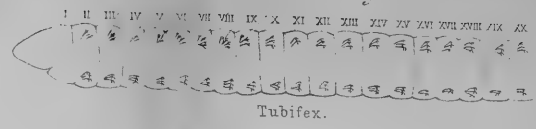 I II III IV V VI VII VIII IX X XI XII XIII XIV XV XVI XVII XVIII XIX XX
Tubifex.